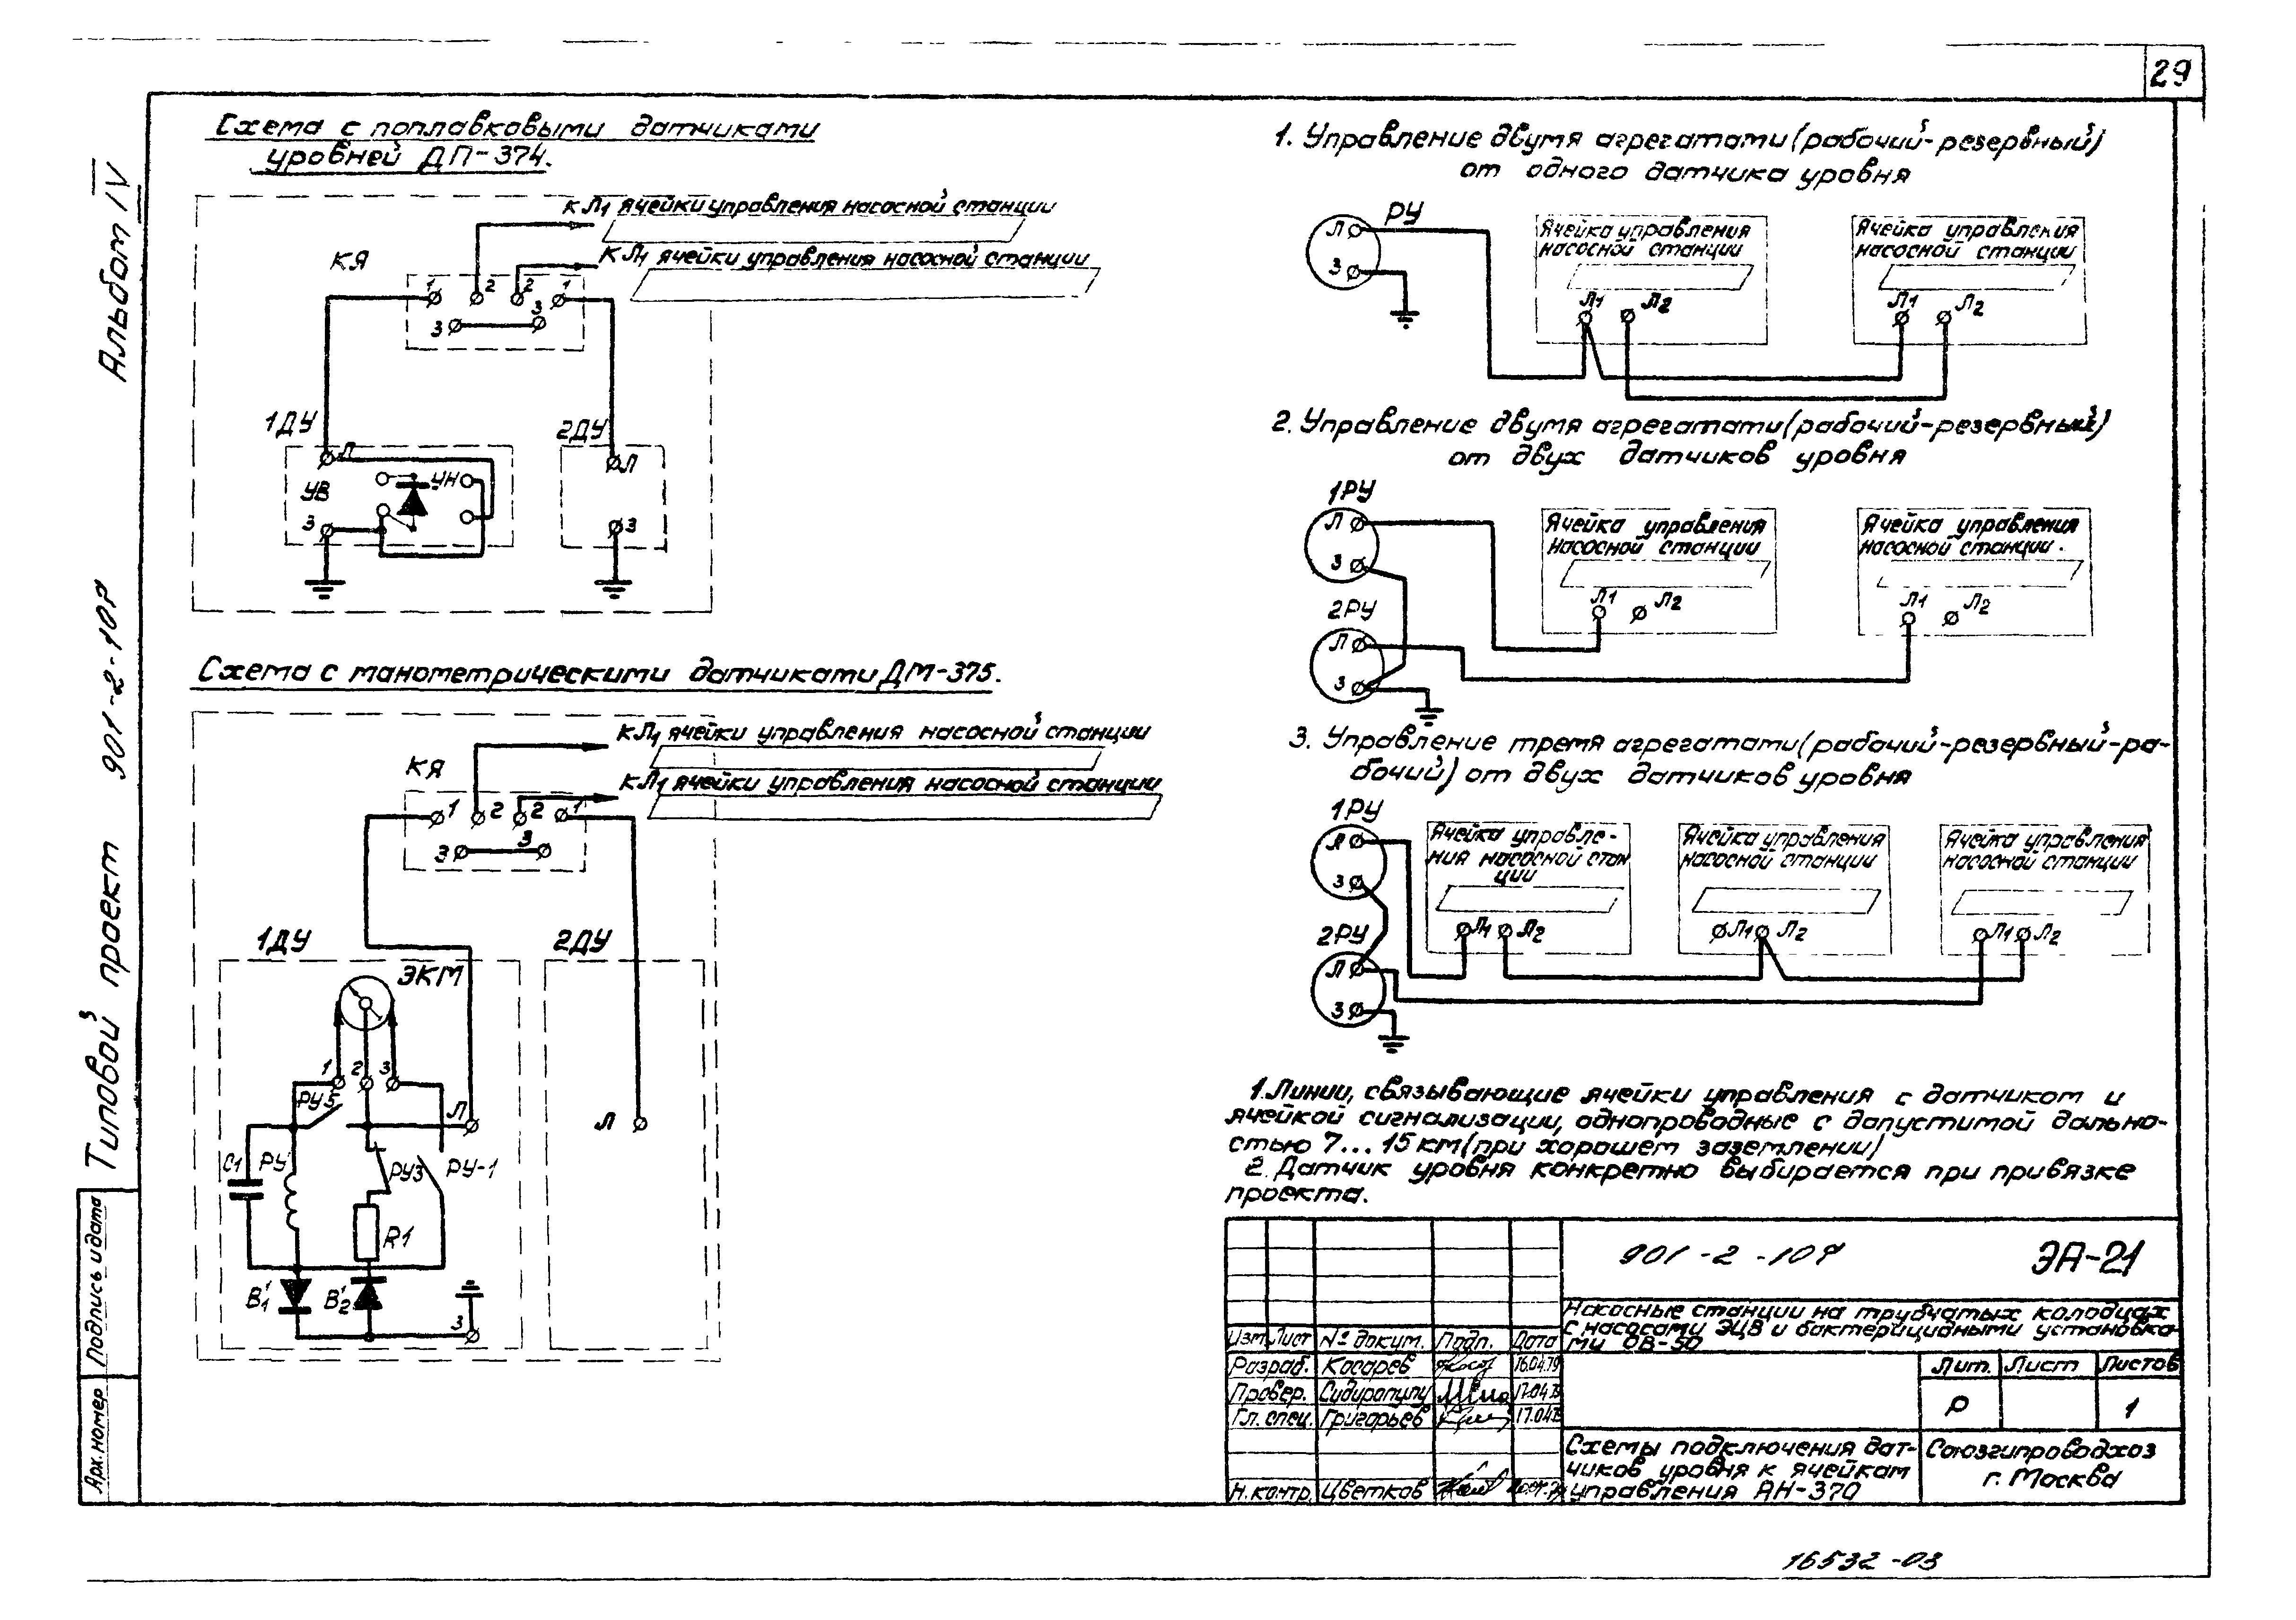 29
Схема с поплавковыми датчиками
уровней ДП-374.
к Л1 ячейки управления насосной станции
к Л1 ячейки управления насосной станции
КЯ
1 2 2 1
3 3
1ДУ
2ДУ
Л
УВ
УН
З
Л
З
Схема с манометрическими датчиками ДМ-375.
к Л1 ячейки управления насосной станции
к Л1 ячейки управления насосной станции
КЯ
1 2 2 1
3 3
1ДУ
2ДУ
ЭКМ
1 2 3
РУ5
Л
Л
С1
РУ
РУ3
РУ-1
R1
В'1
В'2
З
1. Управление двумя агрегатами (рабочий-резервный)
от одного датчика уровня
РУ
Л
З
Ячейка управления
насосной станции
Л1 Л2
Ячейка управления
насосной станции
Л1 Л2
2. Управление двумя агрегатами (рабочий-резервный)
от двух датчиков уровня
1РУ
Л
З
2РУ
Л
З
Ячейка управления
насосной станции
Л1 Л2
Ячейка управления
насосной станции.
Л1 Л2
3. Управление тремя агрегатами (рабочий-резервный-ра-
бочий) от двух датчиков уровня
1РУ
Л
З
2РУ
Л
З
Ячейка управле-
ния насосной стан
ции
Л1 Л2
Ячейка управления
насосной станции
Л1 Л2
Ячейка управления
насосной станции
Л1 Л2
1. Линии, связывающие ячейки управления с датчиком и
ячейкой сигнализации, однопроводные с допустимой дально-
стью 7...15 км (при хорошем заземлении)
2. Датчик уровня конкретно выбирается при привязке
проекта.
901-2-10
ЭА-21
Насосные станции на трубчатых колодцах
с насосами ЭЦВ и бактерицидными установка-
ми ОВ-50
Изм. Лист № докум. Подп. Дата
Разраб. Косарев 16.04.79
Провер. 17.04.79
Гл. спец. Григорьев 17.04.79
Н. контр. Цветков
Лит. Лист Листов
Р 1
Схемы подключения дат-
чиков уровня к ячейкам
управления АН-370
Союзгипроводхоз
г. Москва
16532-03
Альбом IV
Типовой проект 901-2-10
Подпись и дата
Арх. номер